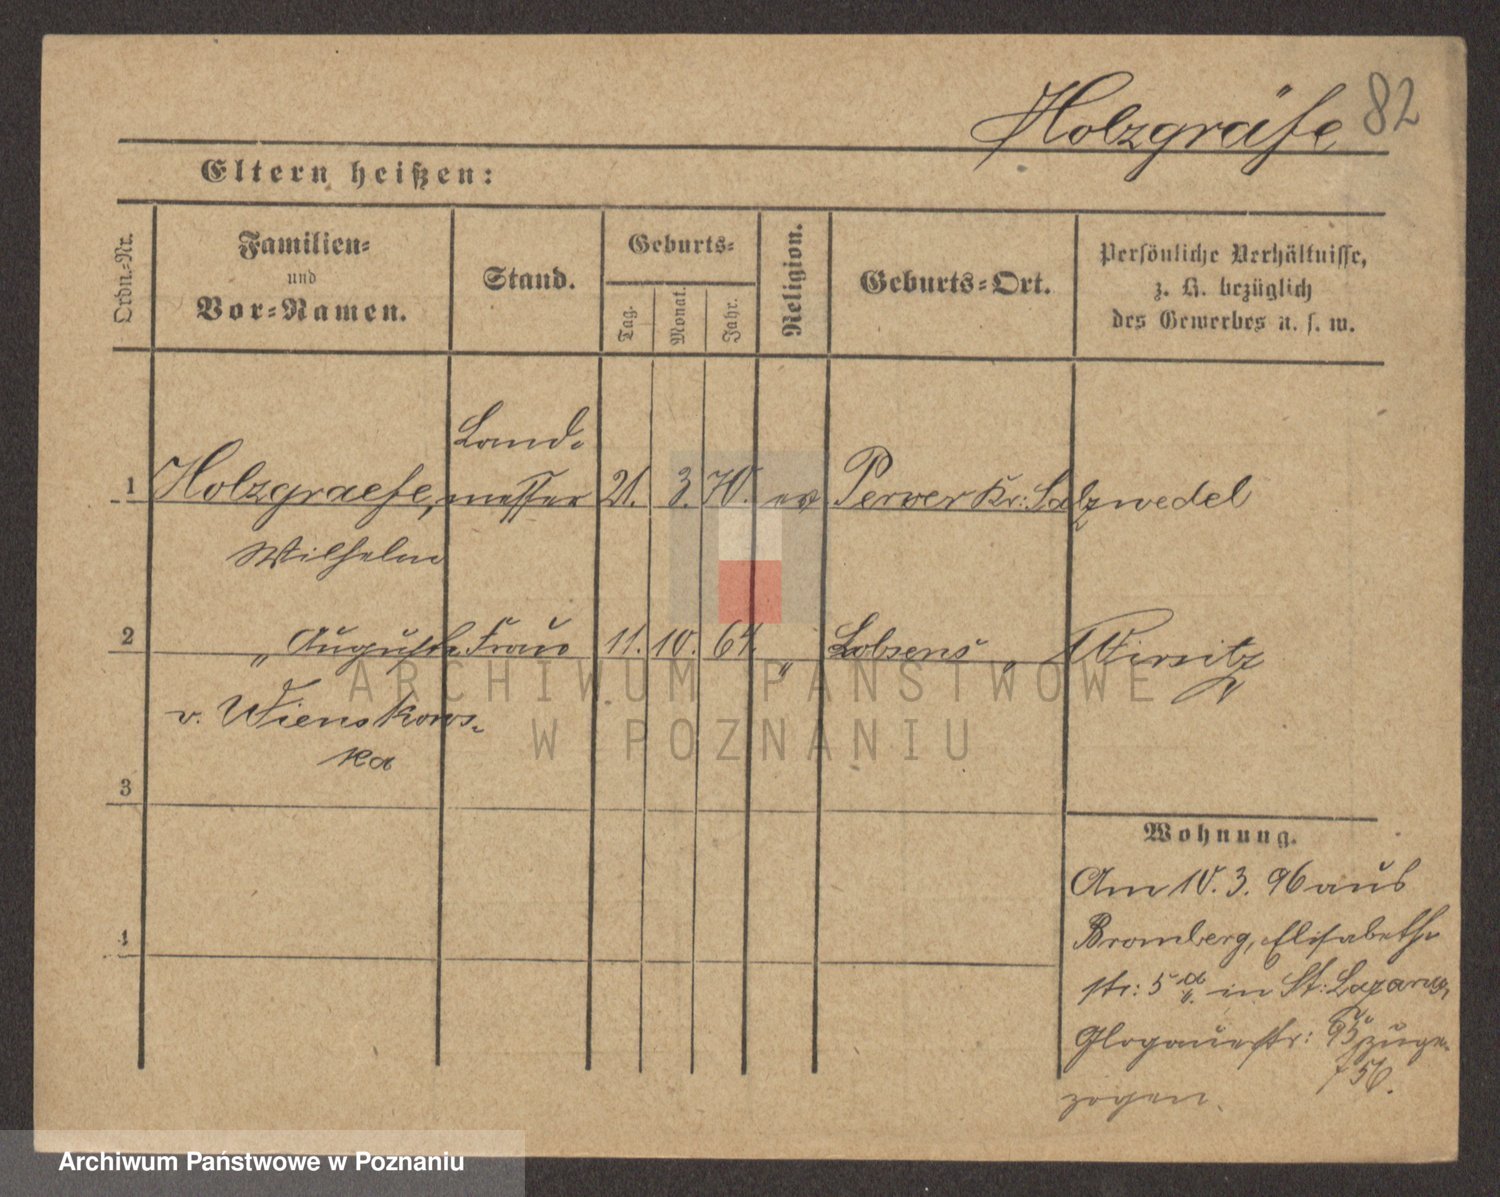 Holzgräfe 82
Eltern heißen:
Ordn.-Nr.
Familien-
und
Vor-Namen.
Stand.
Geburts-
Tag.
Monat.
Jahr.
Religion.
Geburts-Ort.
Persönliche Verhältnisse,
z. B. bezüglich
des Gewerbes u. s. w.
Land-
1 Holzgraefe, messer 21. 3. 70. ev Perver Kr: Salzwedel
Wilhelm
2 „ Auguste Frau 11. 10. 64. „ Lobsens „ Wirsitz
v. Wienskows-
ka
3
4
Wohnung.
Am 10. 3. 96 aus
Bromberg, Elisabeth
str: 5 a. in St: Lazarus,
Glogauerstr: 95 zuge-
zogen.
ARCHIWUM PAŃSTWOWE
W POZNANIU
Archiwum Państwowe w Poznaniu